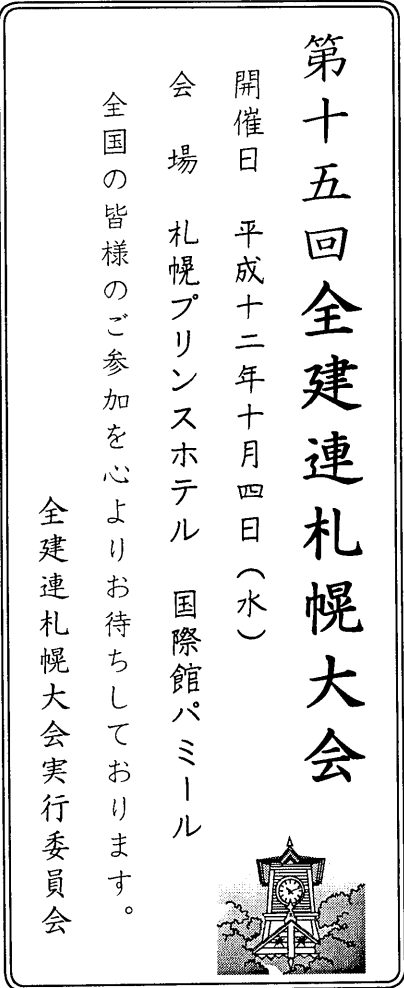 第十五回全建連札幌大会
開催日　平成十二年十月四日（水）
会　場　札幌プリンスホテル　国際館パミール
全国の皆様のご参加を心よりお待ちしております。
全建連札幌大会実行委員会